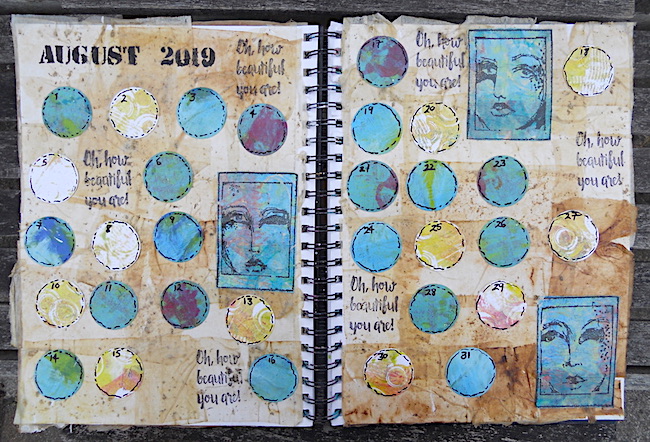 AUGUST 2019
Oh, how
beautiful
you are!
1 2 3 4
5
Oh, how
beautiful
you are!
6
7 8 9
10 11 12 13
14 15
Oh, how
beautiful
you are!
16
17
Oh, how
beautiful
you are!
18
19 20
Oh, how
beautiful
you are!
21 22 23
24 25 26 27
Oh, how
beautiful
you are!
28 29
30 31